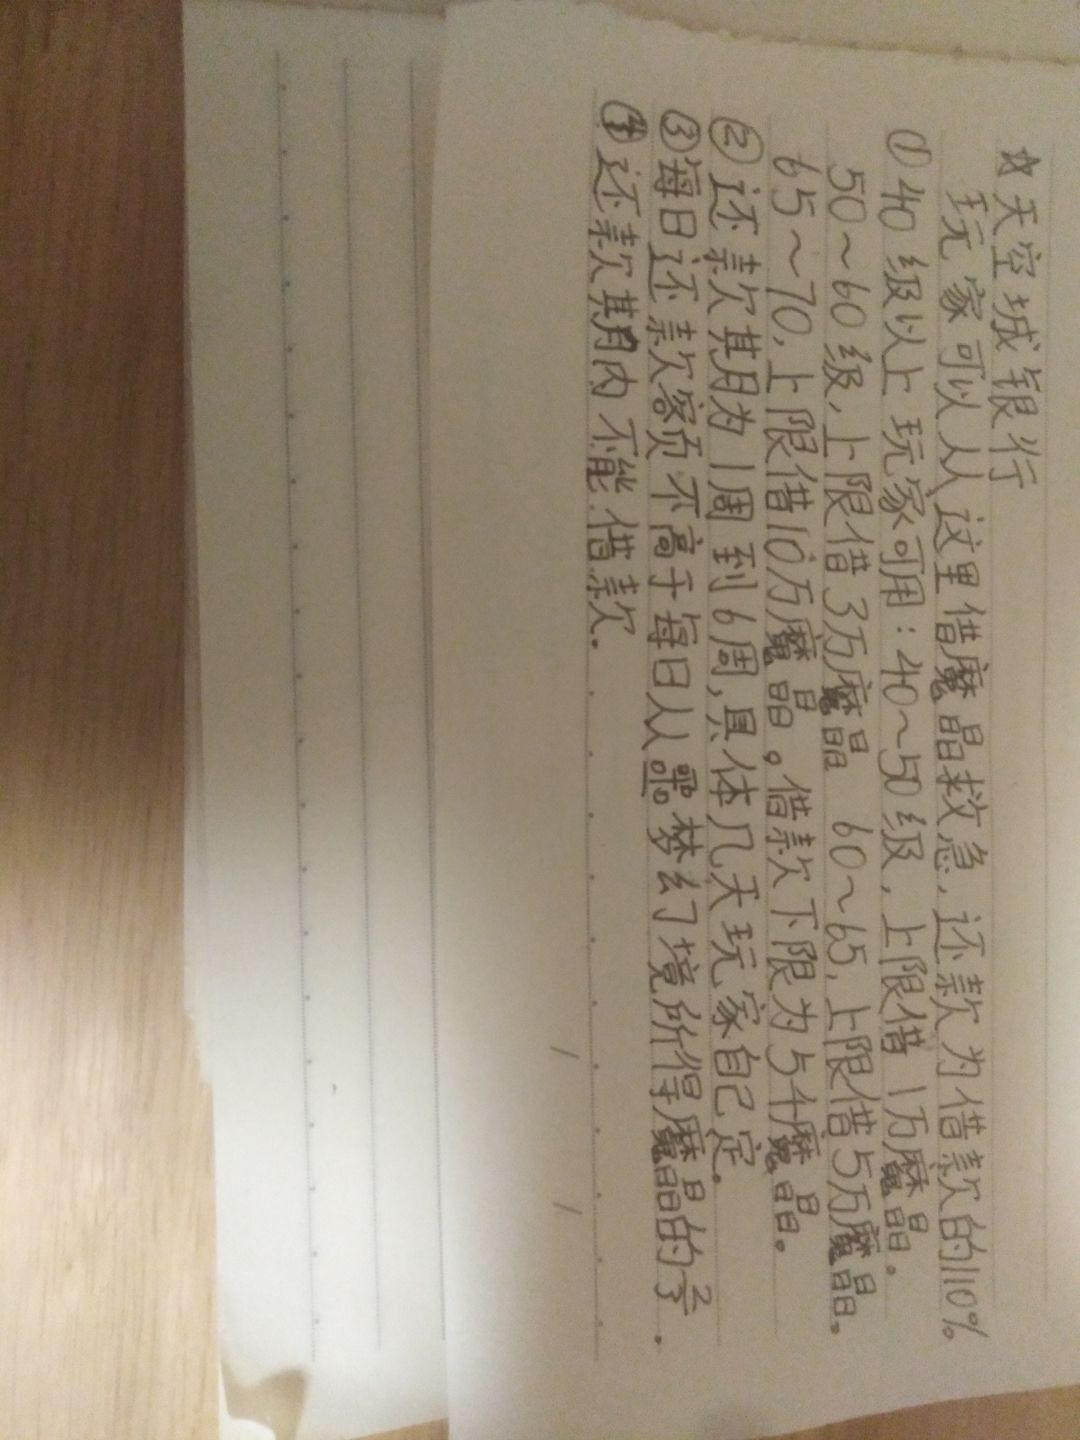 ☆天空城银行
玩家可以从这里借魔晶救急，还款为借款的110%
①40级以上玩家可用：40～50级，上限借1万魔晶。
50～60级，上限借3万魔晶 60～65，上限借5万魔晶。
65～70，上限借10万魔晶。借款下限为5千魔晶。
②还款期为1周到6周，具体几天玩家自己定。
③每日还款额不高于每日从噩梦幻境所得魔晶的2/3.
④还款期内不能借款.